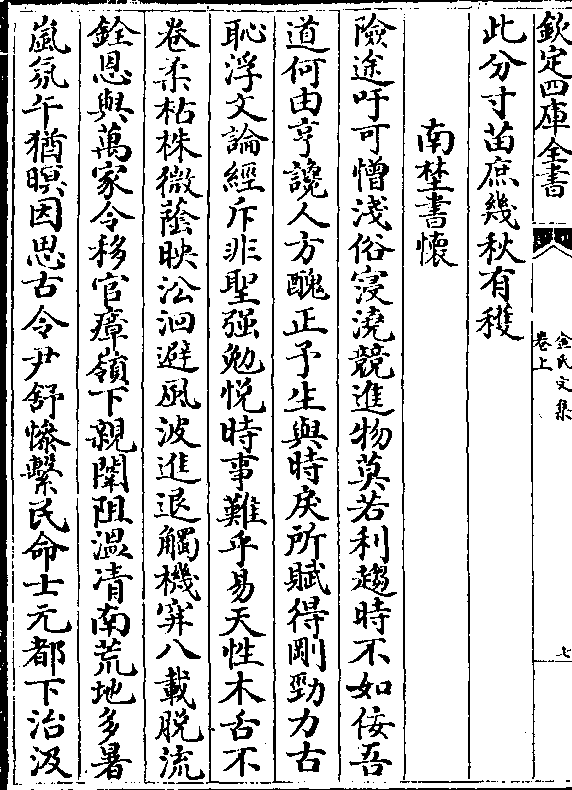 欽定四庫全書
金氏文集
卷上
七
此分寸苗庶幾秋有穫
南埜書懷
險途吁可憎淺俗寖澆競進物莫若利趨時不如佞吾
道何由亨讒人方醜正予生與時戾所賦得剛勁力古
恥浮文論經斥非聖强勉悦時事難乎易天性木舌不
卷柔枯株微蔭映沿洄避風波進退觸機穽八載脱流
銓恩與萬家令移官瘴嶺下親闈阻温凊南荒地多暑
嵐氛午猶暝因思古令尹舒慘繫民命士元都下治汲